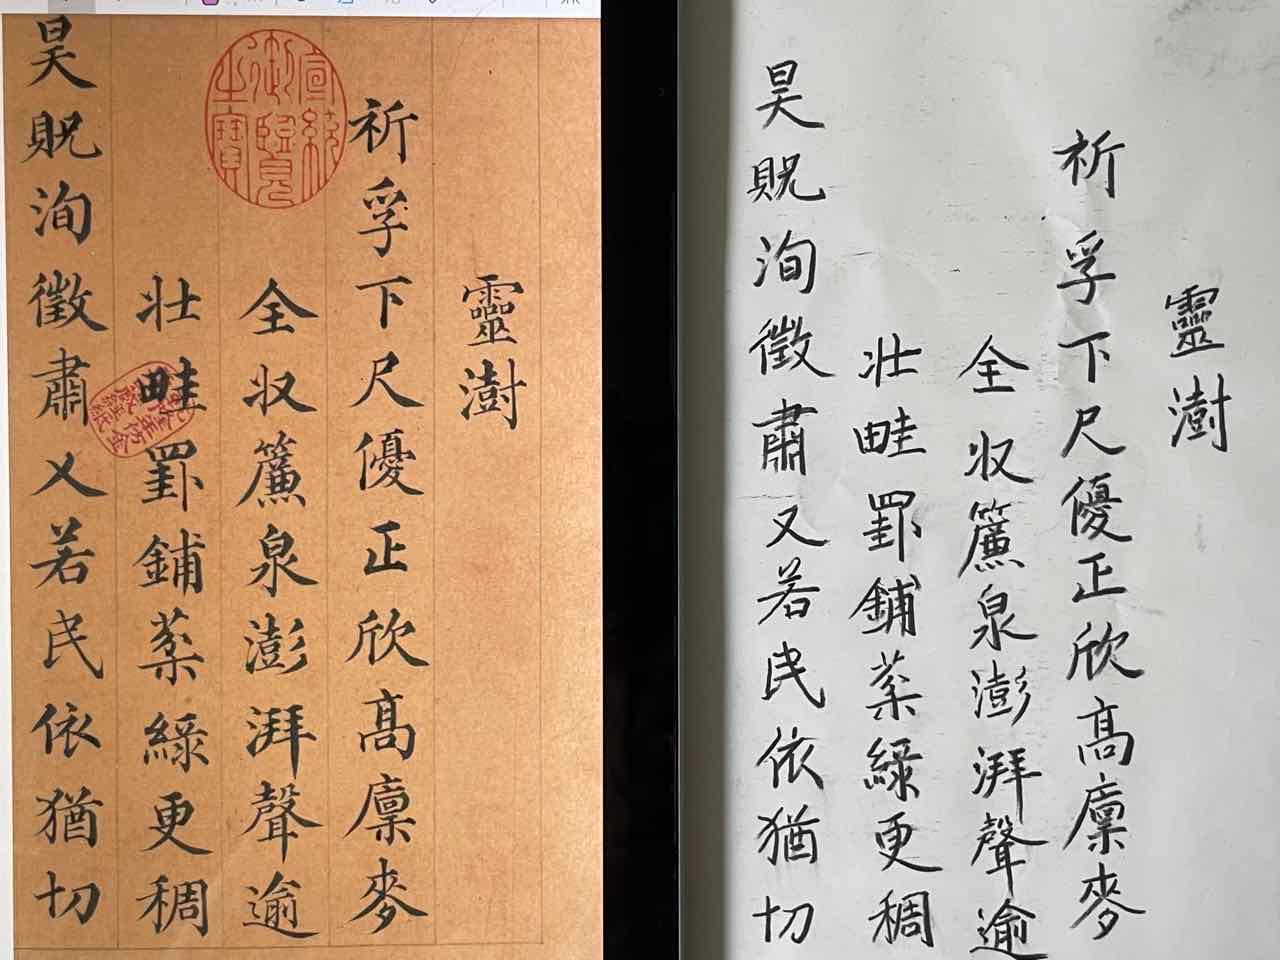 靈澍
祈孚下尺優正欣髙廩麥
全収簾泉澎湃聲逾
壯畦罫鋪棻綠更稠
昊貺洵徵肅乂若民依猶切
宣統御覽之寶
靈澍
祈孚下尺優正欣髙廩麥
全収簾泉澎湃聲逾
壯畦罫鋪棻綠更稠
昊貺洵徵肅又若民依猶切